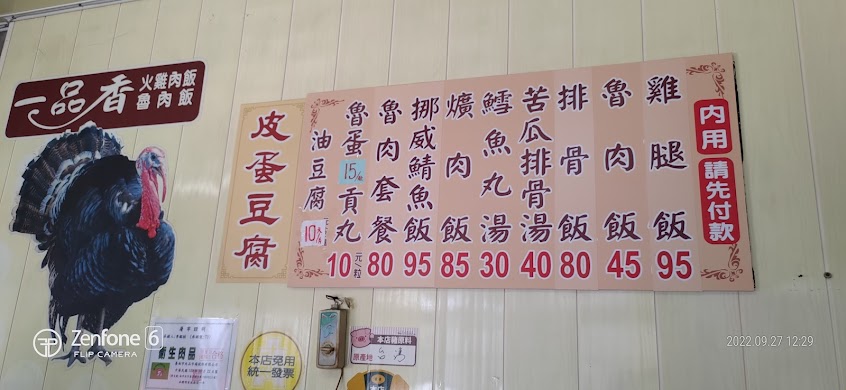 一品香
火雞肉飯
魯肉飯
皮蛋豆腐
內用 請先付款
雞腿飯 95
魯肉飯 45
排骨飯 80
苦瓜排骨湯 40
鱈魚丸湯 30
爌肉飯 85
挪威鯖魚飯 95
魯肉套餐 80
魯蛋 15/
貢丸 10元/粒
油豆腐 10
衛生肉品
本店免用
統一發票
本店豬原料
原產地 台灣
Zenfone 6
FLIP CAMERA
2022.09.27 12:29